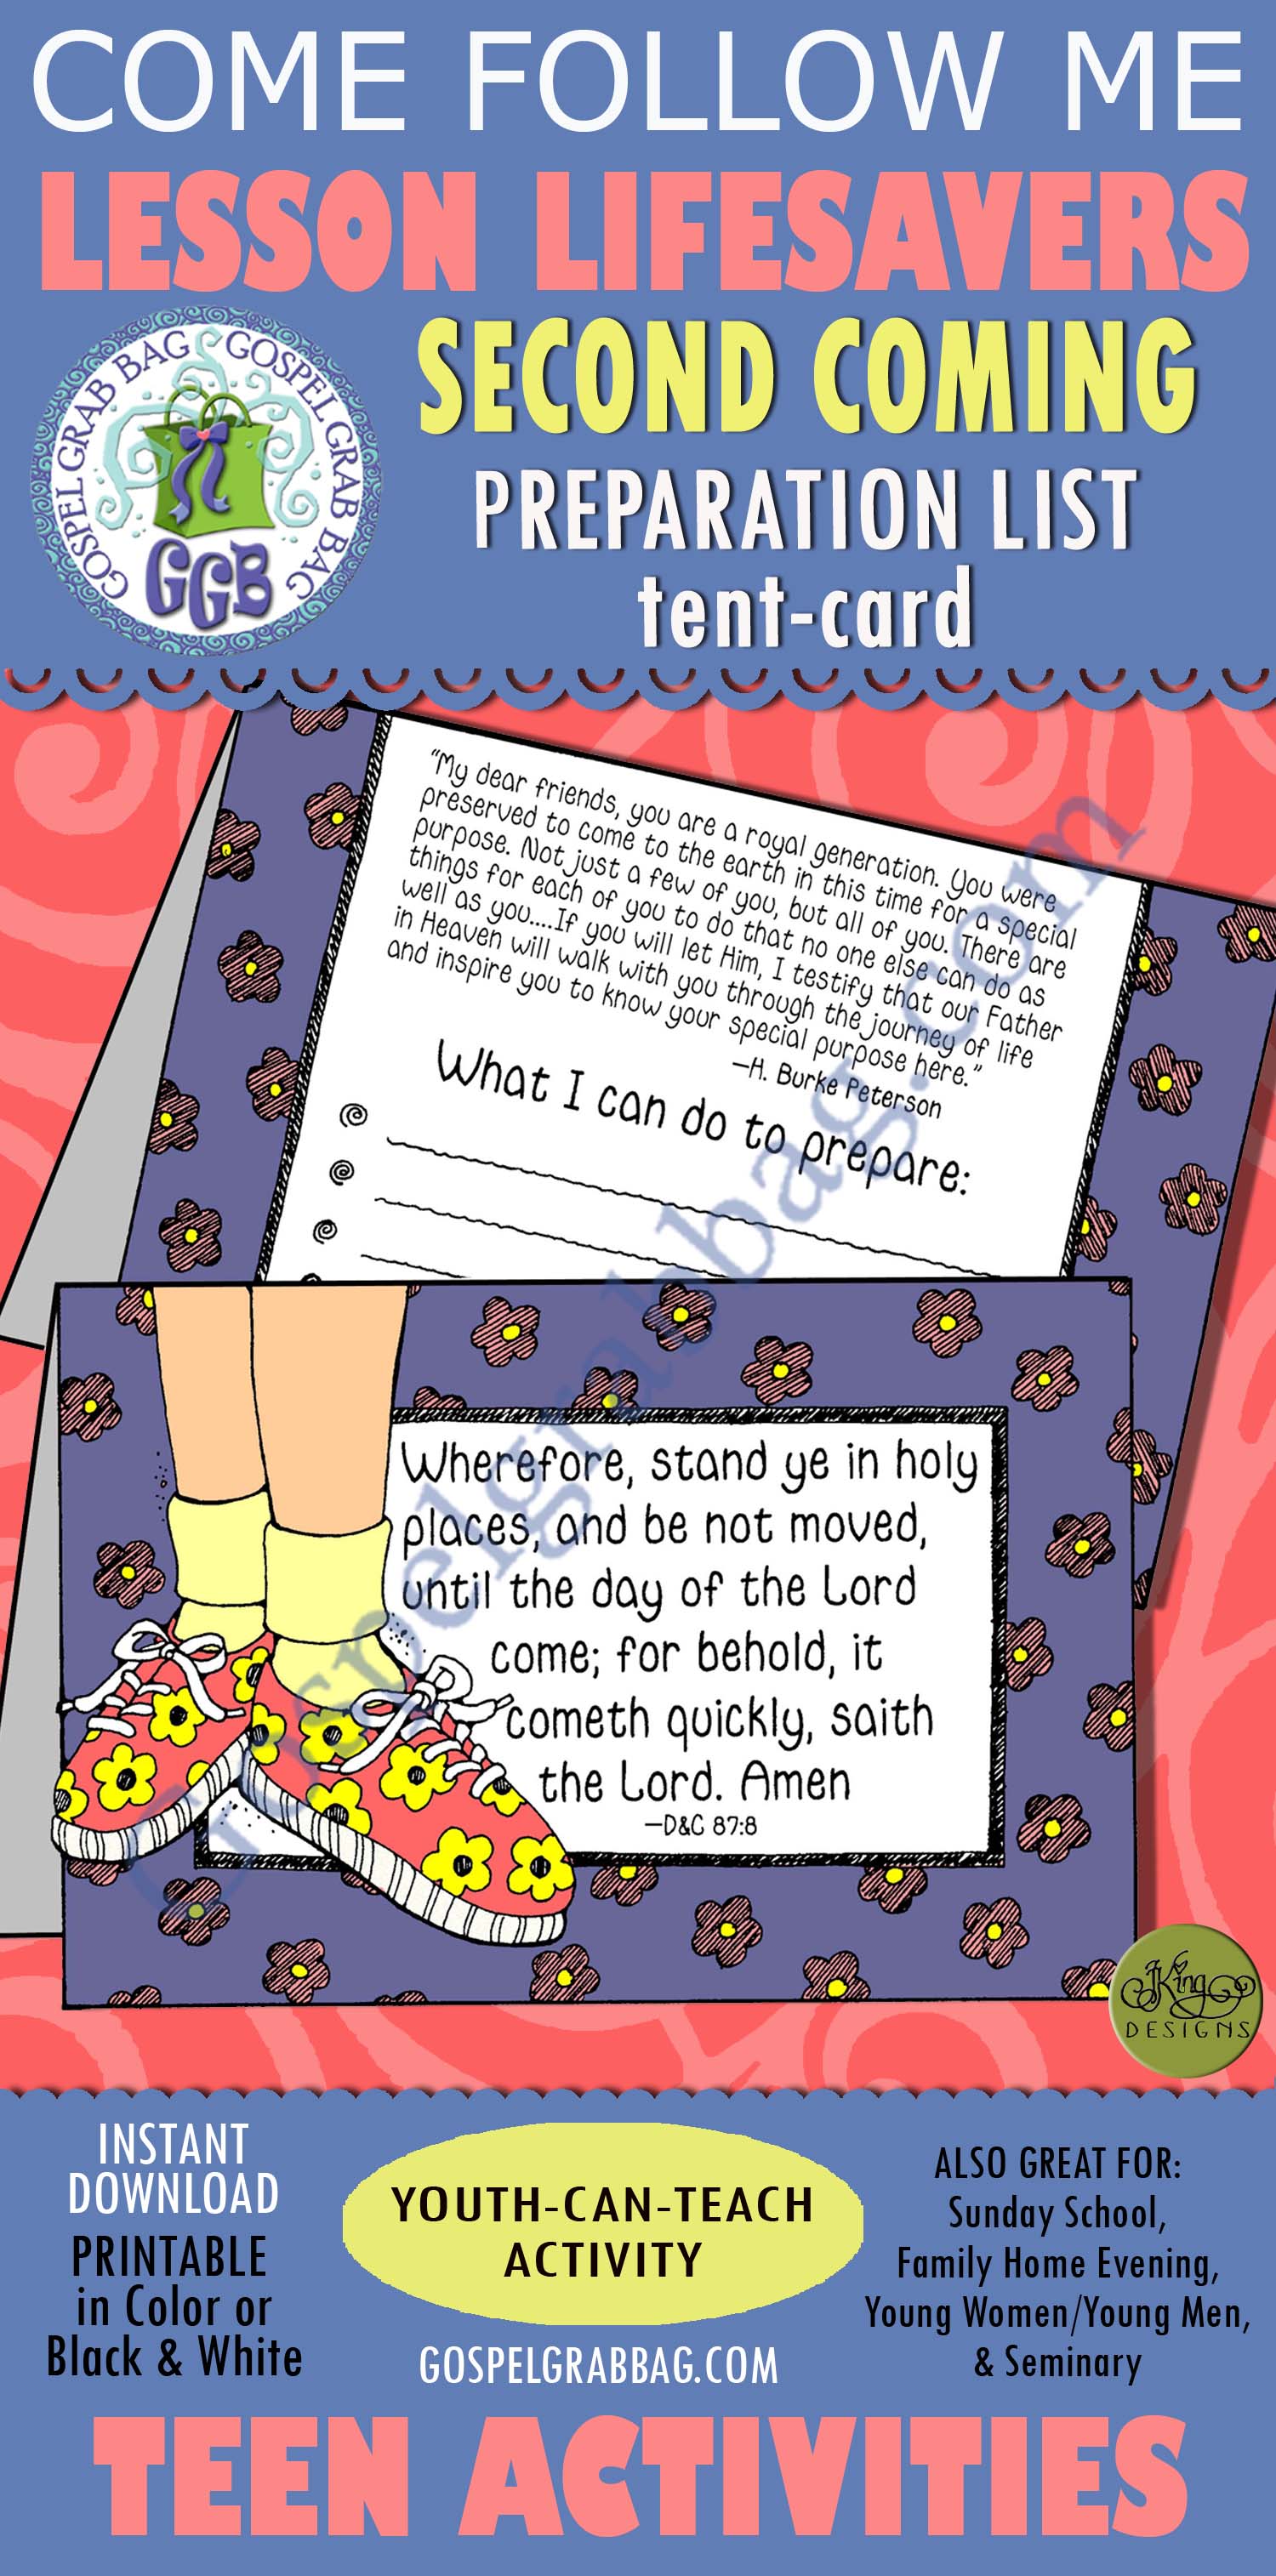 COME FOLLOW ME
LESSON LIFESAVERS
GOSPEL GRAB BAG GOSPEL GRAB BAG
GGB
SECOND COMING
PREPARATION LIST
tent-card
"My dear friends, you are a royal generation. You were
preserved to come to the earth in this time for a special
purpose. Not just a few of you, but all of you. There are
things for each of you to do that no one else can do as
well as you....If you will let Him, I testify that our Father
in Heaven will walk with you through the journey of life
and inspire you to know your special purpose here."
—H. Burke Peterson
What I can do to prepare:
Wherefore, stand ye in holy
places, and be not moved,
until the day of the Lord
come; for behold, it
cometh quickly, saith
the Lord. Amen
—D&C 87:8
Gospelgrabbag.com
JKing
DESIGNS
INSTANT
DOWNLOAD
PRINTABLE
in Color or
Black & White
YOUTH-CAN-TEACH
ACTIVITY
GOSPELGRABBAG.COM
ALSO GREAT FOR:
Sunday School,
Family Home Evening,
Young Women/Young Men,
& Seminary
TEEN ACTIVITIES